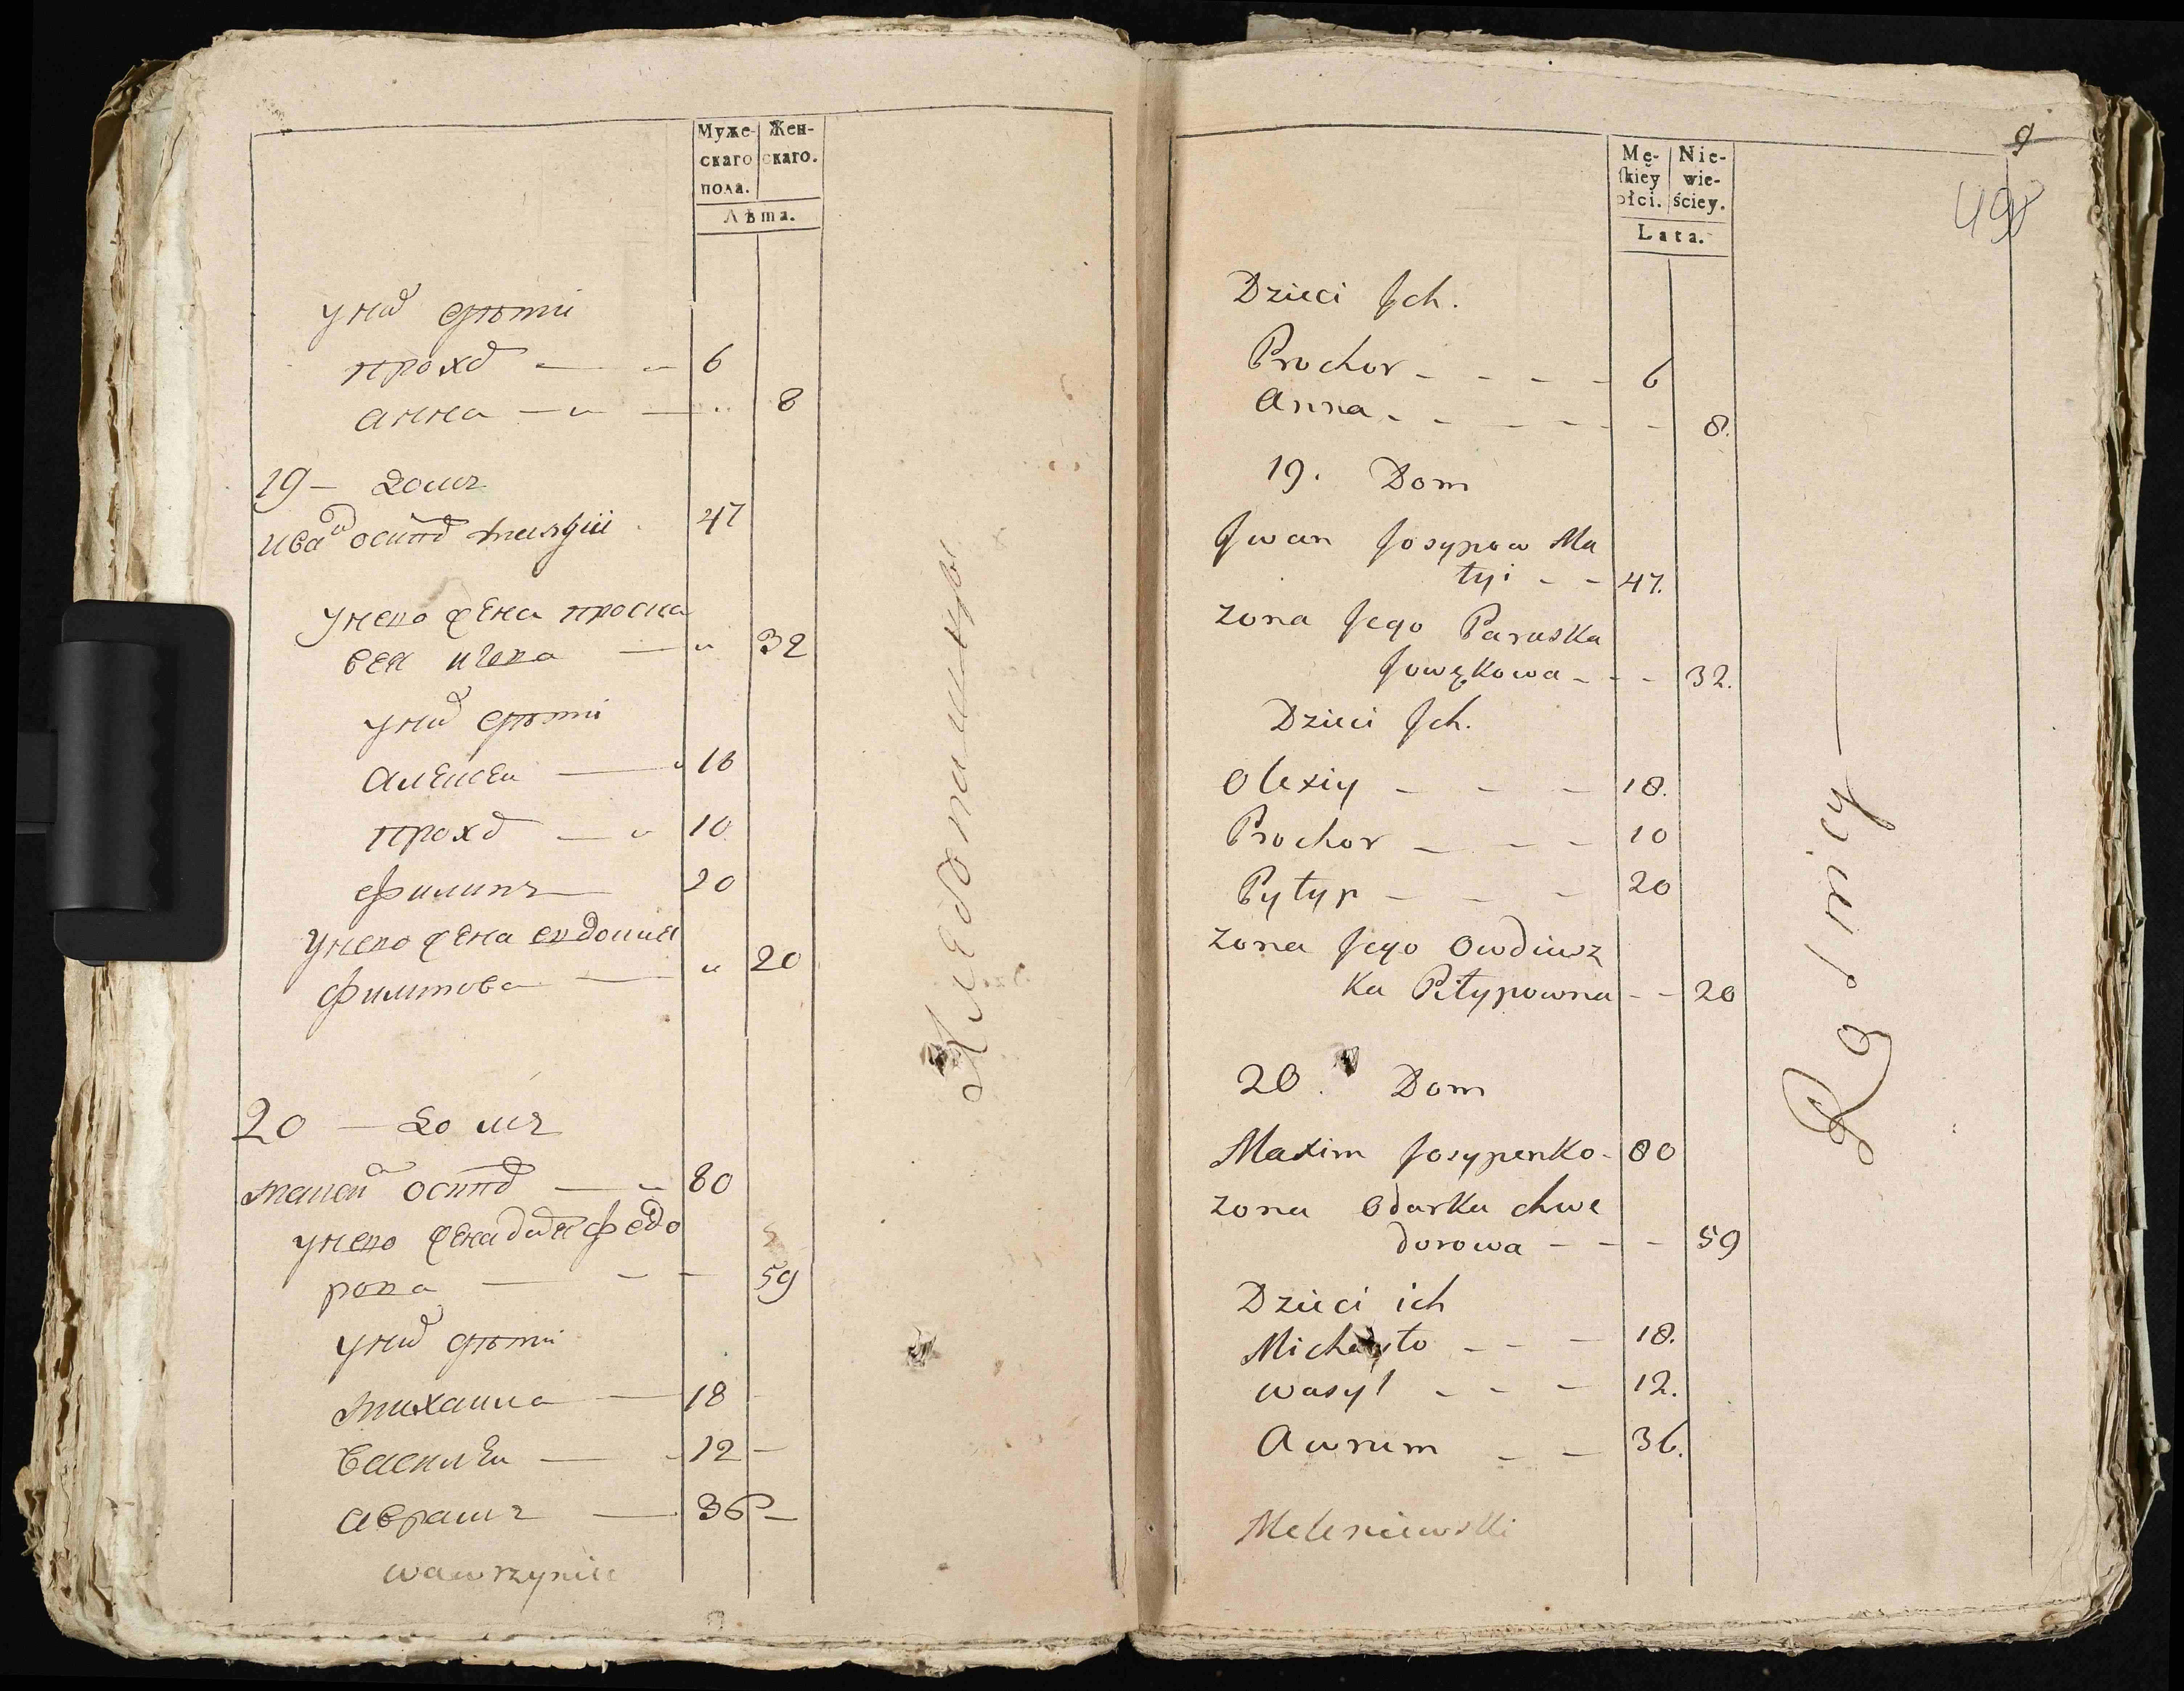 Муже- Жен-
скаго скаго.
пола.
Лѣта.
у них дѣти
прохор 6
анна 8
19 – Домъ
Иван осипов 47
у него жена праска
вея 32
у них дѣти
алексеи 18
прохор 10
филипъ 20
у него жена евдокия
филипова 20
20 – Домъ
максим осипов 80
у него жена дарья федо
рова 59
у них дѣти
михаила 18
василеи 12
аврамъ 36
wawrzyniec
Хлебопашцы
9
49
Mę- Nie-
skiey wie-
płci. ściey.
Lata.
Dzieci Jch.
Prochor - - - - 6
Anna - - - - - 8.
19. Dom
Jwan Josypow Ma
tyi - - 47.
zona Jego Paraska
Jowękowa - - - 32.
Dzieci Jch.
Olexiy - - - 18.
Prochor - - - 10
Pyłyp - - - 20
zona Jego Owdiusz
ka Piłypowna - - 20
20. Dom
Maxim Josypenko - 80
zona Odarka chwe
dorowa - - - 59
Dzieci ich
Michayło - - - 18.
wasyl - - - 12.
Awram - - 36.
Meleniewski
Rolnicy —